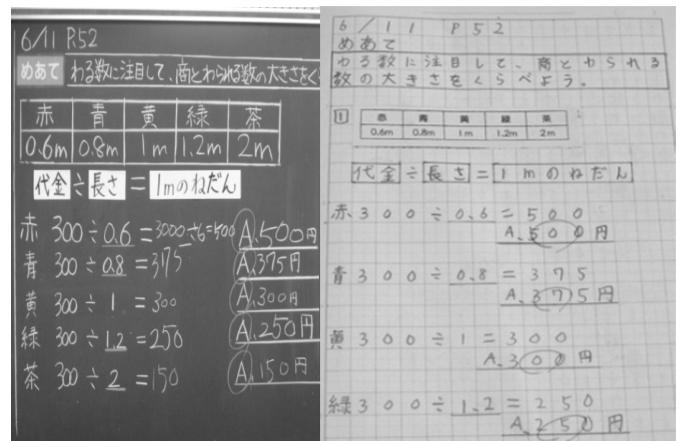 6/11 P.52
めあて わる数に注目して、商とわられる数の大きさをく
赤 青 黄 緑 茶
0.6m 0.8m 1m 1.2m 2m
代金÷長さ=1mのねだん
赤 300÷0.6=3000÷6=500 A.500円
青 300÷0.8=375 A.375円
黄 300÷1=300 A.300円
緑 300÷1.2=250 A.250円
茶 300÷2=150 A.150円
6/11 P52
めあて
わる数に注目して、商とわられる
数の大きさをくらべよう。
1
赤 青 黄 緑 茶
0.6m 0.8m 1m 1.2m 2m
代金÷長さ=1mのねだん
赤300÷0.6=500
A.500円
青300÷0.8=375
A.375円
黄300÷1=300
A.300円
緑300÷1.2=250
A.250円